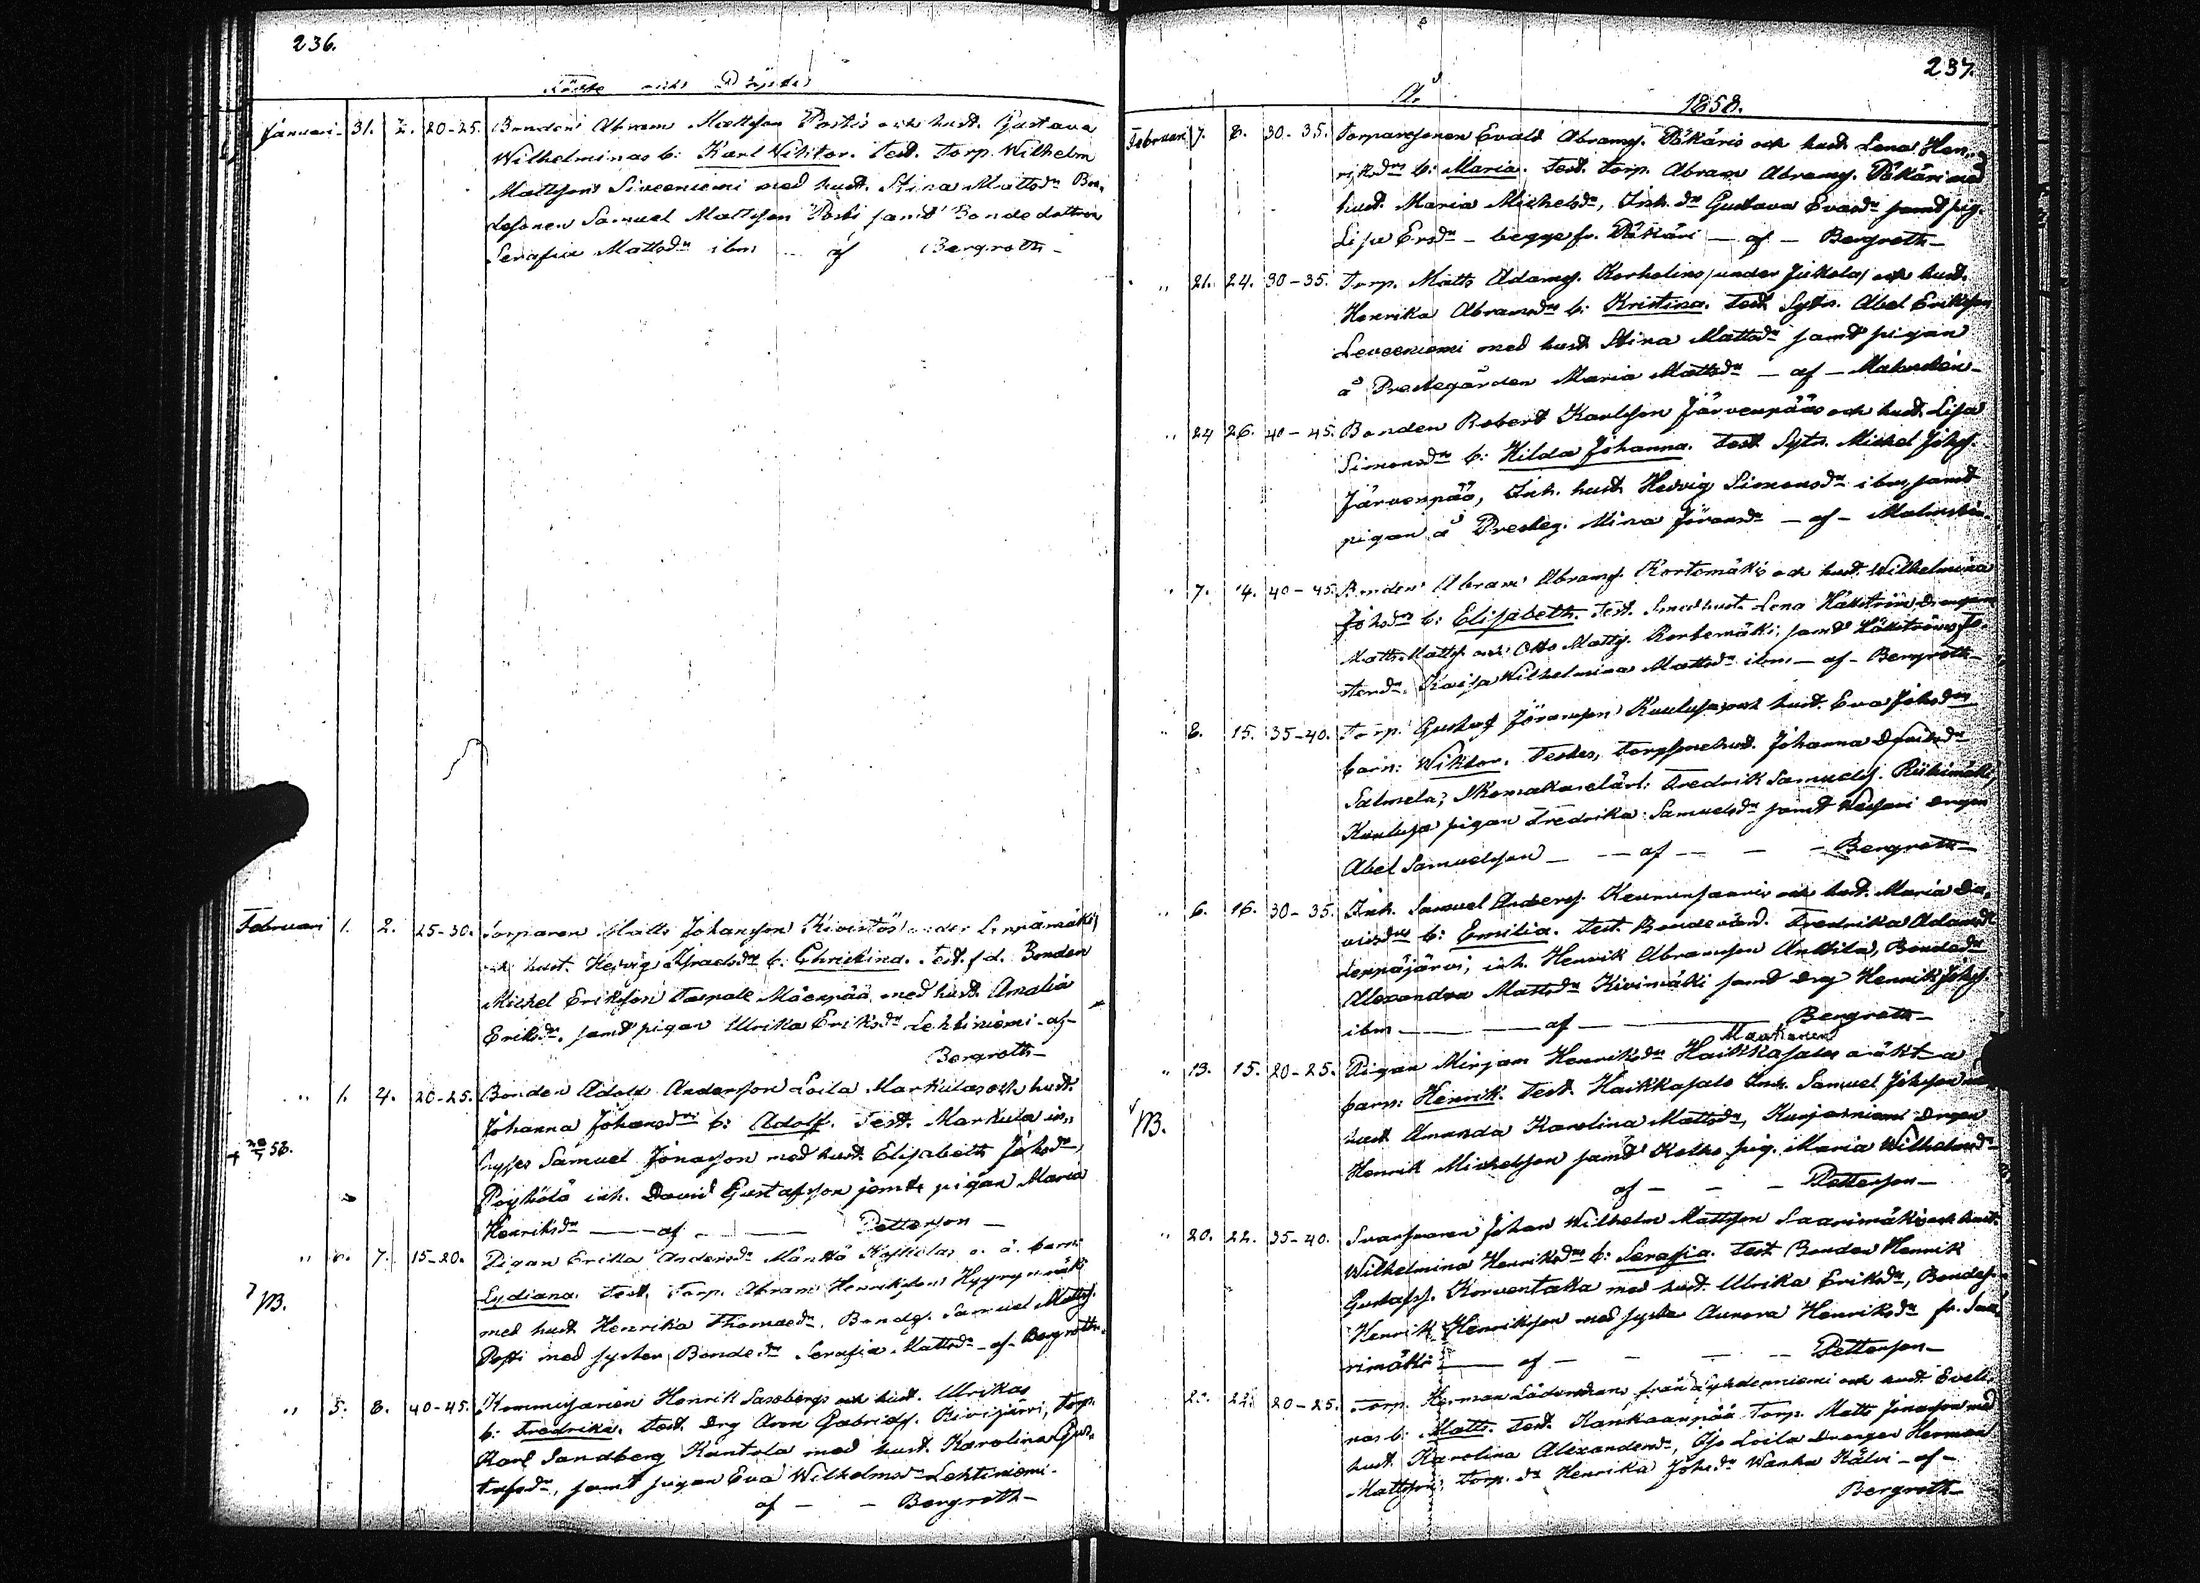 236.
Födde och Döpte
Januari 31. 2. 20-25. Bonden Abram Mattsson Postis och hust. Gustava
Wilhelminas b: Karl Wiktor. Test. Torp. Wilhelm
Mattsson Siveeniemi med hust. Stina Mattsdr Bon-
desonen Samuel Mattsson Posti samt Bondedottren
Serafia Mattsdr ibm af Bergroth
Februari 1. 2. 25-30. Torparen Matts Johansson Kivistös under Leppämäki
och hust. Hedvig Israelsdrs b: Christina. Test. f.d. Bonden
Michel Eriksson Taipale Mäenpää med hust. Amalia
Eriksdr, samt pigan Ulrika Eriksdr Lehtiniemi - af -
Bergroth
" 1. 4. 20-25. Bonden Adolf Andersson Loila Markulas och hust.
Johanna Johansdrs b: Adolf. Test. Markula in-
hyses Samuel Jonasson med hust. Elisabeth Johsdr,
Pöyhölä inh. David Gustafsson jemte pigan Maria
Henriksdr — af — Petterson —
58.
" 6. 7. 15-20. Pigan Erika Andersdr Mänttä Koskelas o. ä. barn:
Lydiana. Test. Torp. Abram Henriksson Hyyrynmäki
med hust. Henrika Thomasdr, Bondes. Samuel Mattss.
Posti med syster Bondedr Serafia Mattsdr - af - Bergroth
NB.
" 5. 8. 40-45. Kommissarien Henrik Saxbergs och hust. Ulrikas
b: Fredrika. Test. Drg Aron Gabrielss. Kivijärvi, Torp.
Karl Sandberg Kantola med hust. Karolina Gus-
tafsdr, samt pigan Eva Wilhelmsdr Lehtiniemi.
af — — Bergroth —
237.
År 1858.
Februari 7. 8. 30-35. Torparesonen Evald Abramss. Päkäris och hust. Lena Hen-
riksdrs b: Maria. Test. Torp. Abram Abramss. Päkäri med
hust. Maria Michelsdr, Inh. dr Gustava Evasdr samt pig.
Lisa Ersdr - begge fr. Päkäri - af - Bergroth
" 21. 24. 30-35. Torp. Matts Adamss. Korholins /under Jukola/ och hust.
Henrika Abramsdrs b: Kristina. Test. Sytn. Abel Eriksson
Leveeniemi med hust. Stina Mattsdr samt pigan
å Prestegården Maria Mattsdr - af - Malmstén
" 24 26. 40-45. Bonden Robert Karlsson Järvenpääs och hust. Lisa
Simonsdrs b: Hilda Johanna. Test. Sytn. Michel Johss.
Järvenpää, Inh. hust. Hedvig Simonsdr ibm, samt
pigan å Presteg. Mina Jöransdr - af - Malmstén
" 7. 14. 40-45. Bonden Abram Abramss. Kortemäkis och hust. Wilhelmina
Johsdrs b: Elisabeth. Test. Smedhust. Lena Häkström drengarne
Matts Mattss. och Otto Mattss. Kortemäki, samt Häkströms fo-
sterdr. Kaisa Wilhelmina Mattsdr ibm - af - Bergroth
" 8. 15. 35-40. Torp. Gustaf Jöransson Kuulusas och hust. Eva Johsdrs
barn: Wiktor. Testes, torpsonehust. Johanna
Salmela; Skomakarelärl. Fredrik Samuelss. Riihimäki,
Kuulusa pigan Fredrika Samuelsdr samt Wesari drengen
Abel Samuelsson — — af — — Bergroth
" 6. 16. 30-35. Inh. Samuel Anderss. Keumunsaaris och hust. Maria Da-
vidsdrs b: Emilia. Test. Bondevärd. Fredrika Adamsdr
Leppäjärvi, inh. Henrik Abramsson Anttila, Bondedr
Alexandra Mattsdr Kivimäki samt drg Henrik Johss.
ibm — — af — Bergroth
" 13. 15. 20-25. Pigan Mirjam Henriksdr Haikkasalos oäkta
barn: Henrik. Test. Haikkasalo Inh. Samuel Johsson med
hust. Amanda Karolina Mattsdr, Kurjenniemi drengen
Henrik Michelsson samt Kotka pig. Maria Wilhelmsdr
af — — Petterson —
NB.
" 20. 22. 35-40. Svarfvaren Johan Wilhelm Mattsson Saarimäkis och hust.
Wilhelmina Henriksdrs b: Serafia. Test. Bonden Henrik
Gustafss. Korventaka med hust. Ulrika Eriksdr, Bondes.
Henrik Henriksson med syster Aurora Henriksdr fr. Saa-
rimäki — af — — Petterson —
22. 20-25. Torp. Herman från Lyhdenniemi och hust. Eveli-
nas b: Matts. Test. Kankaanpää Torp. Matts Jonasson med
hust. Karolina Alexandersdr, Ojo Loila drengen Herman
Mattsson, Torp. dr Henrika Johsdr Wanha Kälvi - af -
Bergroth